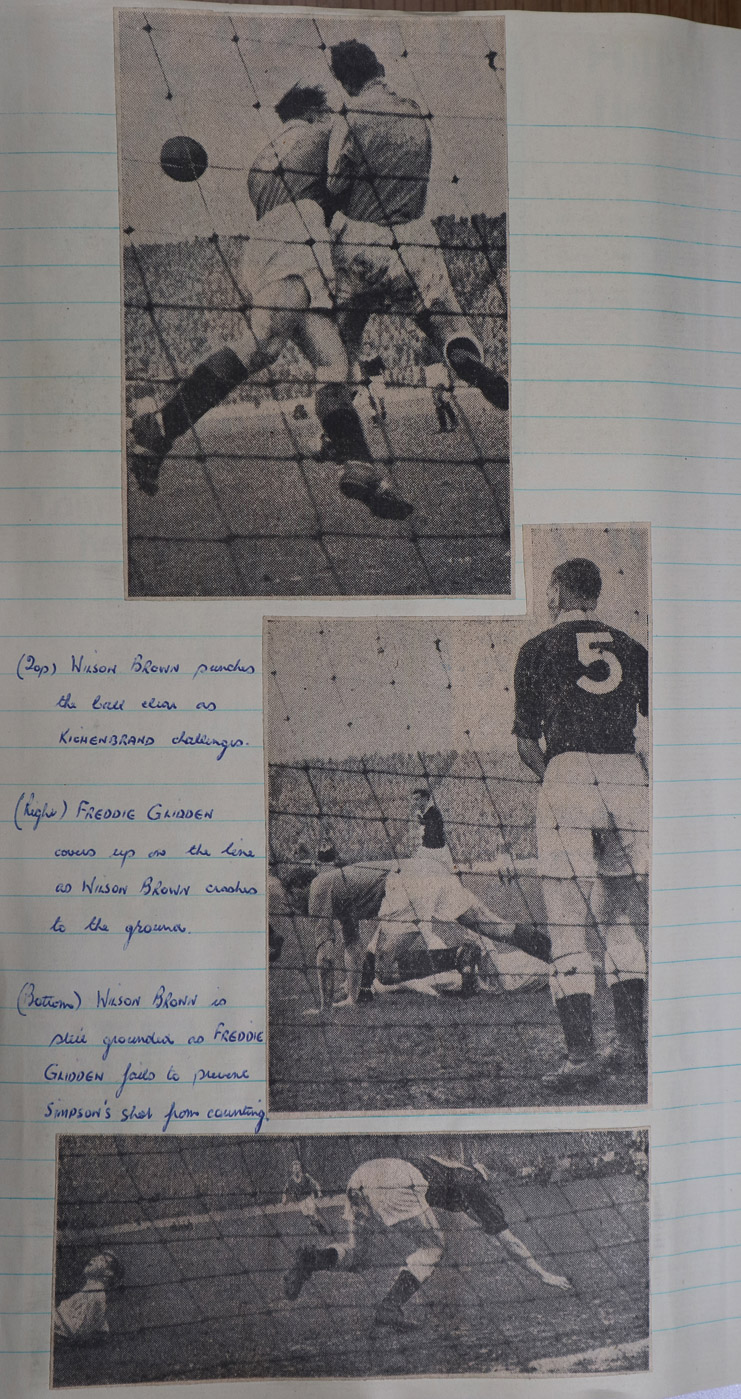 (Top) WILSON BROWN punches
the ball clear as
KICHENBRAND challenges.
(Right) FREDDIE GLIDDEN
covers up on the line
as WILSON BROWN crashes
to the ground.
(Bottom) WILSON BROWN is
still grounded as FREDDIE
GLIDDEN fails to prevent
SIMPSON'S shot from counting.
5